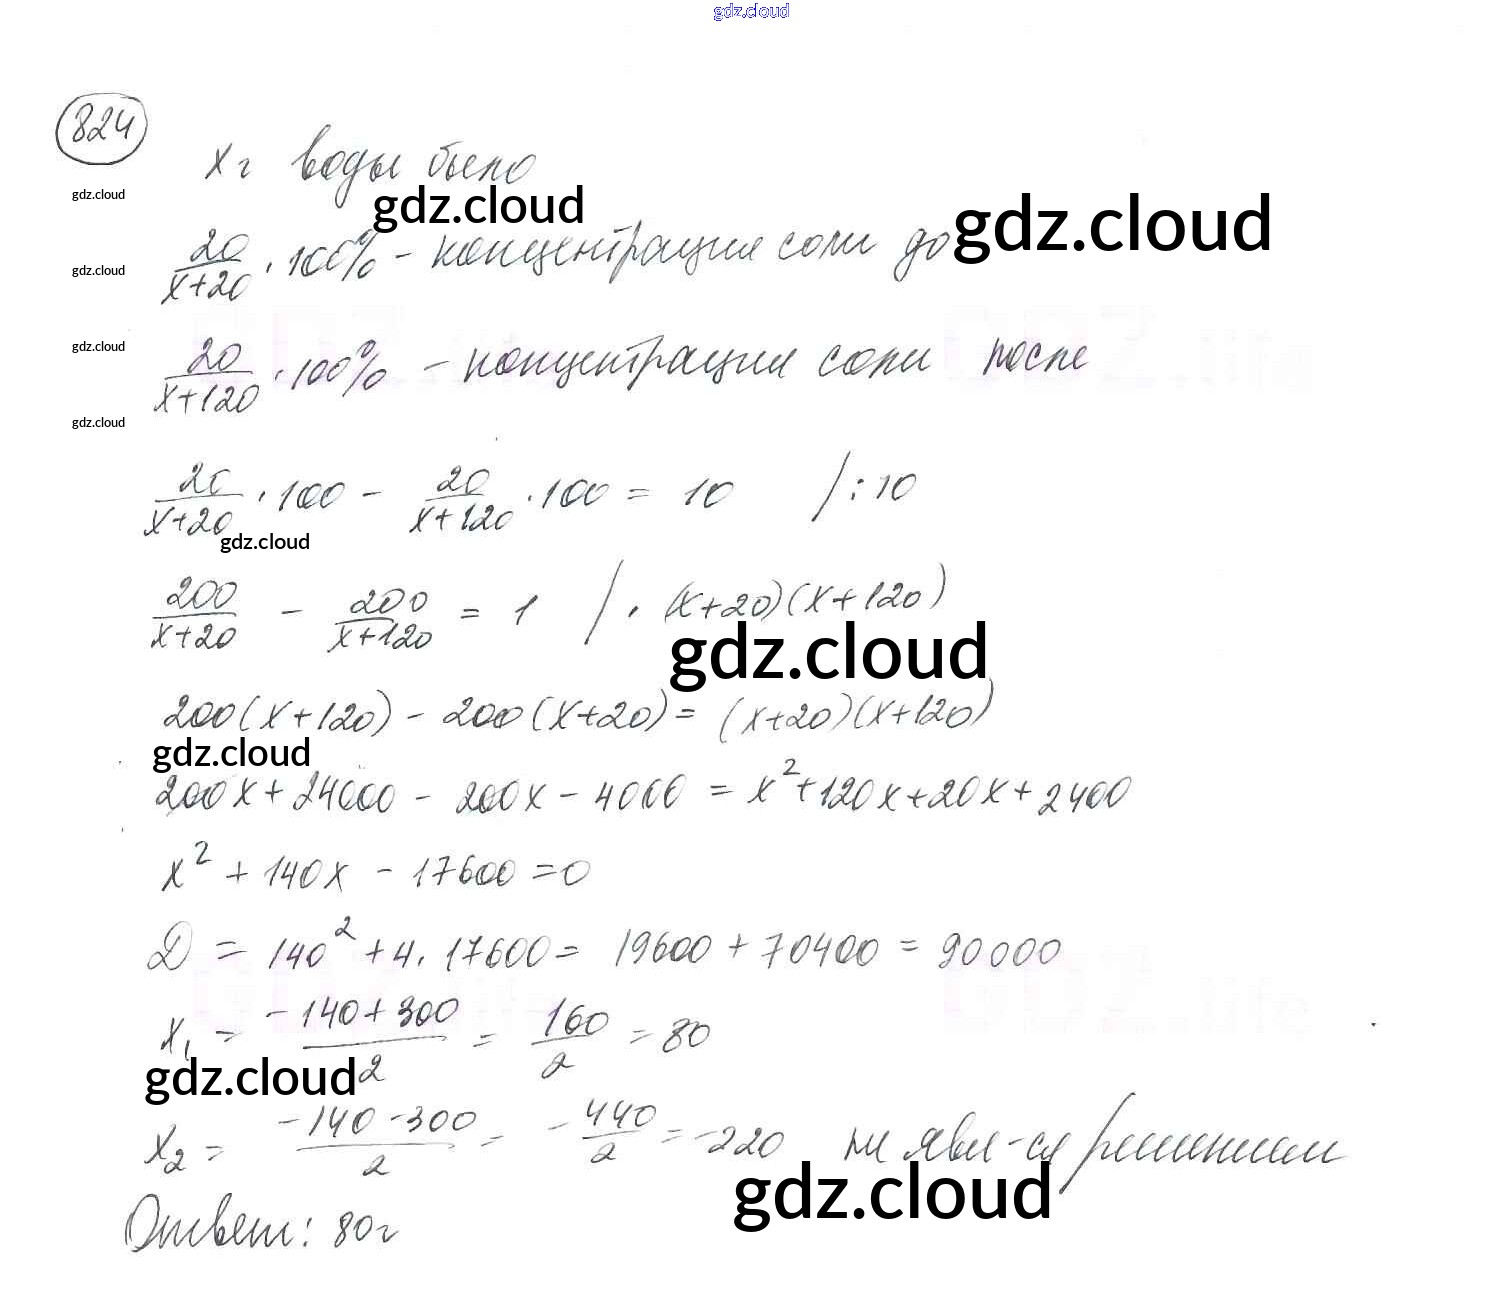 gdz.cloud
824
x г воды было
gdz.cloud
gdz.cloud
20/(x+20) · 100% - концентрация соли до
gdz.cloud
gdz.cloud
20/(x+120) · 100% - концентрация соли после
gdz.cloud
gdz.cloud
20/(x+20) · 100 - 20/(x+120) · 100 = 10 /:10
gdz.cloud
200/(x+20) - 200/(x+120) = 1 / · (x+20)(x+120)
gdz.cloud
200(x+120) - 200(x+20) = (x+20)(x+120)
gdz.cloud
200x + 24000 - 200x - 4000 = x² + 120x + 20x + 2400
x² + 140x - 17600 = 0
D = 140² + 4 · 17600 = 19600 + 70400 = 90000
x₁ = (-140+300)/2 = 160/2 = 80
gdz.cloud
x₂ = (-140-300)/2 = -440/2 = -220 не явл-ся решением
gdz.cloud
Ответ: 80г